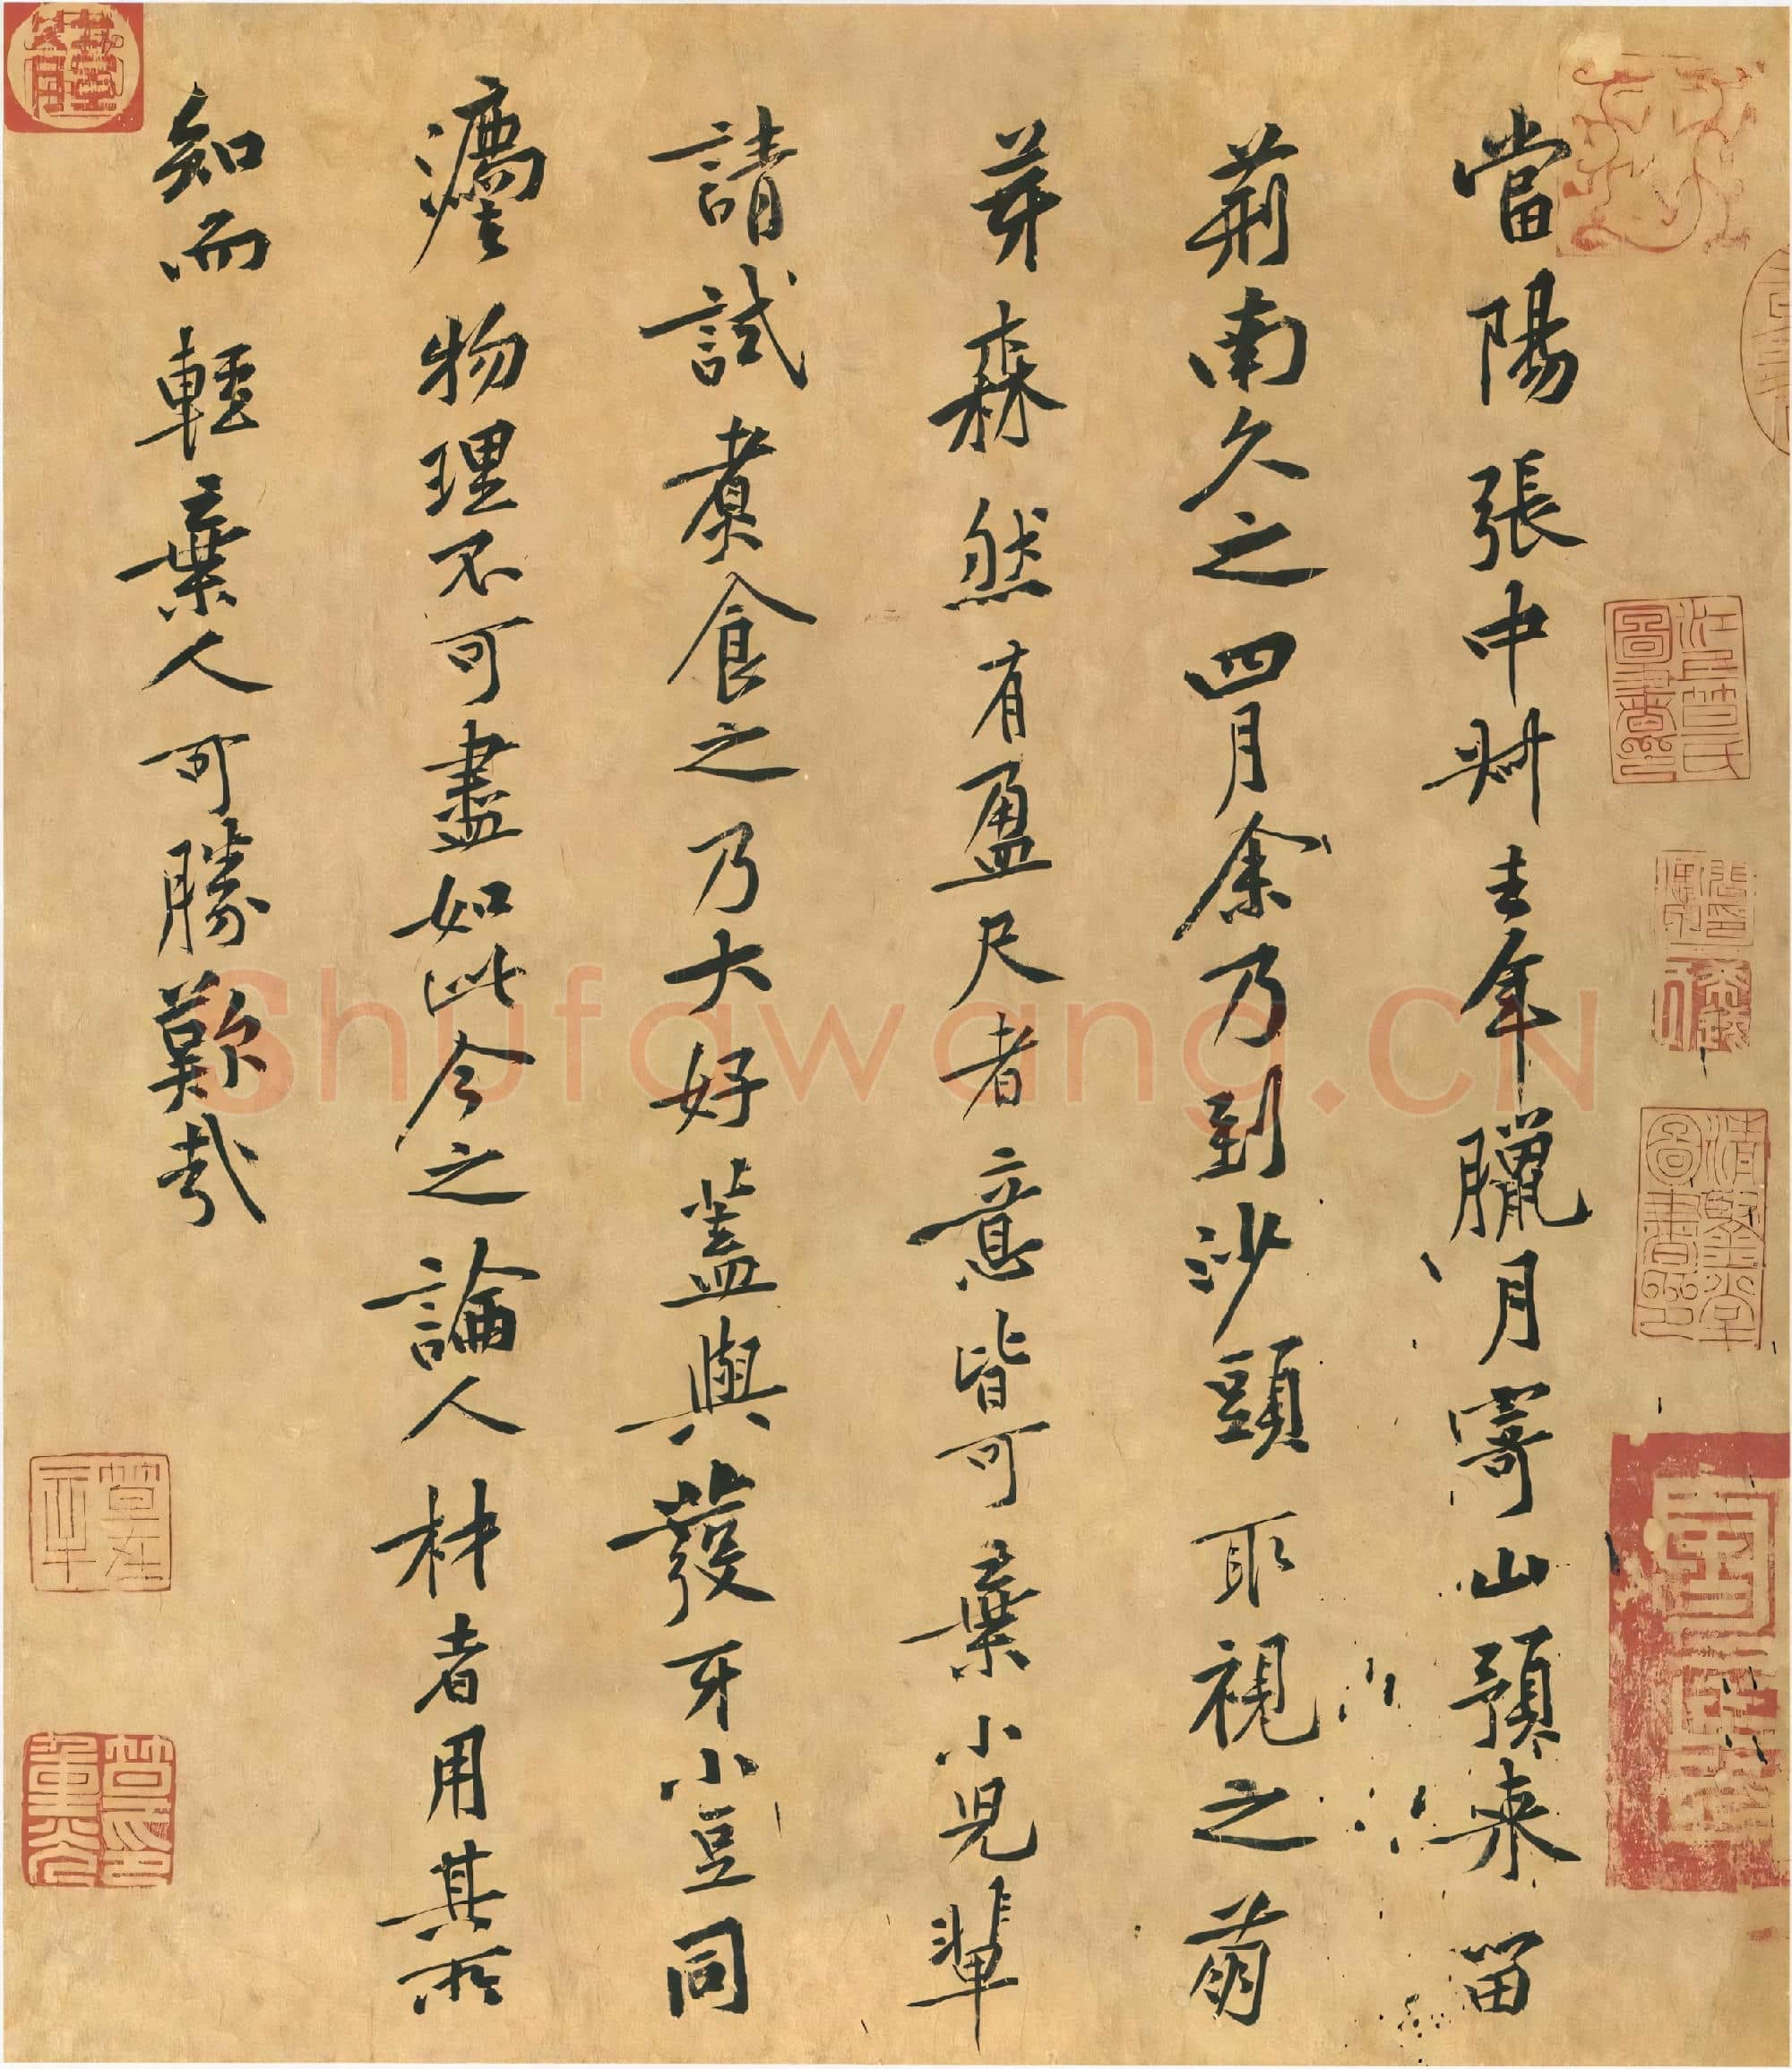 當陽張中叔去年臘月寄山預来留
荊南久之四月余乃到沙頭取視之萌
芽森然有盈尺者意皆可棄小兒輩
請試煮食之乃大好蓋與發牙小豆同
灋物理不可盡如此今之論人材者用其所
知而輕棄人可勝歎哉
Shufawang.CN